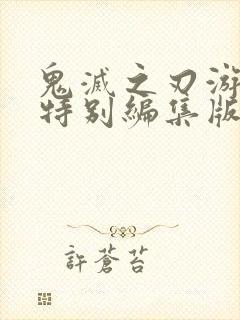 鬼滅之刃游
特别編集版
許蒼苔